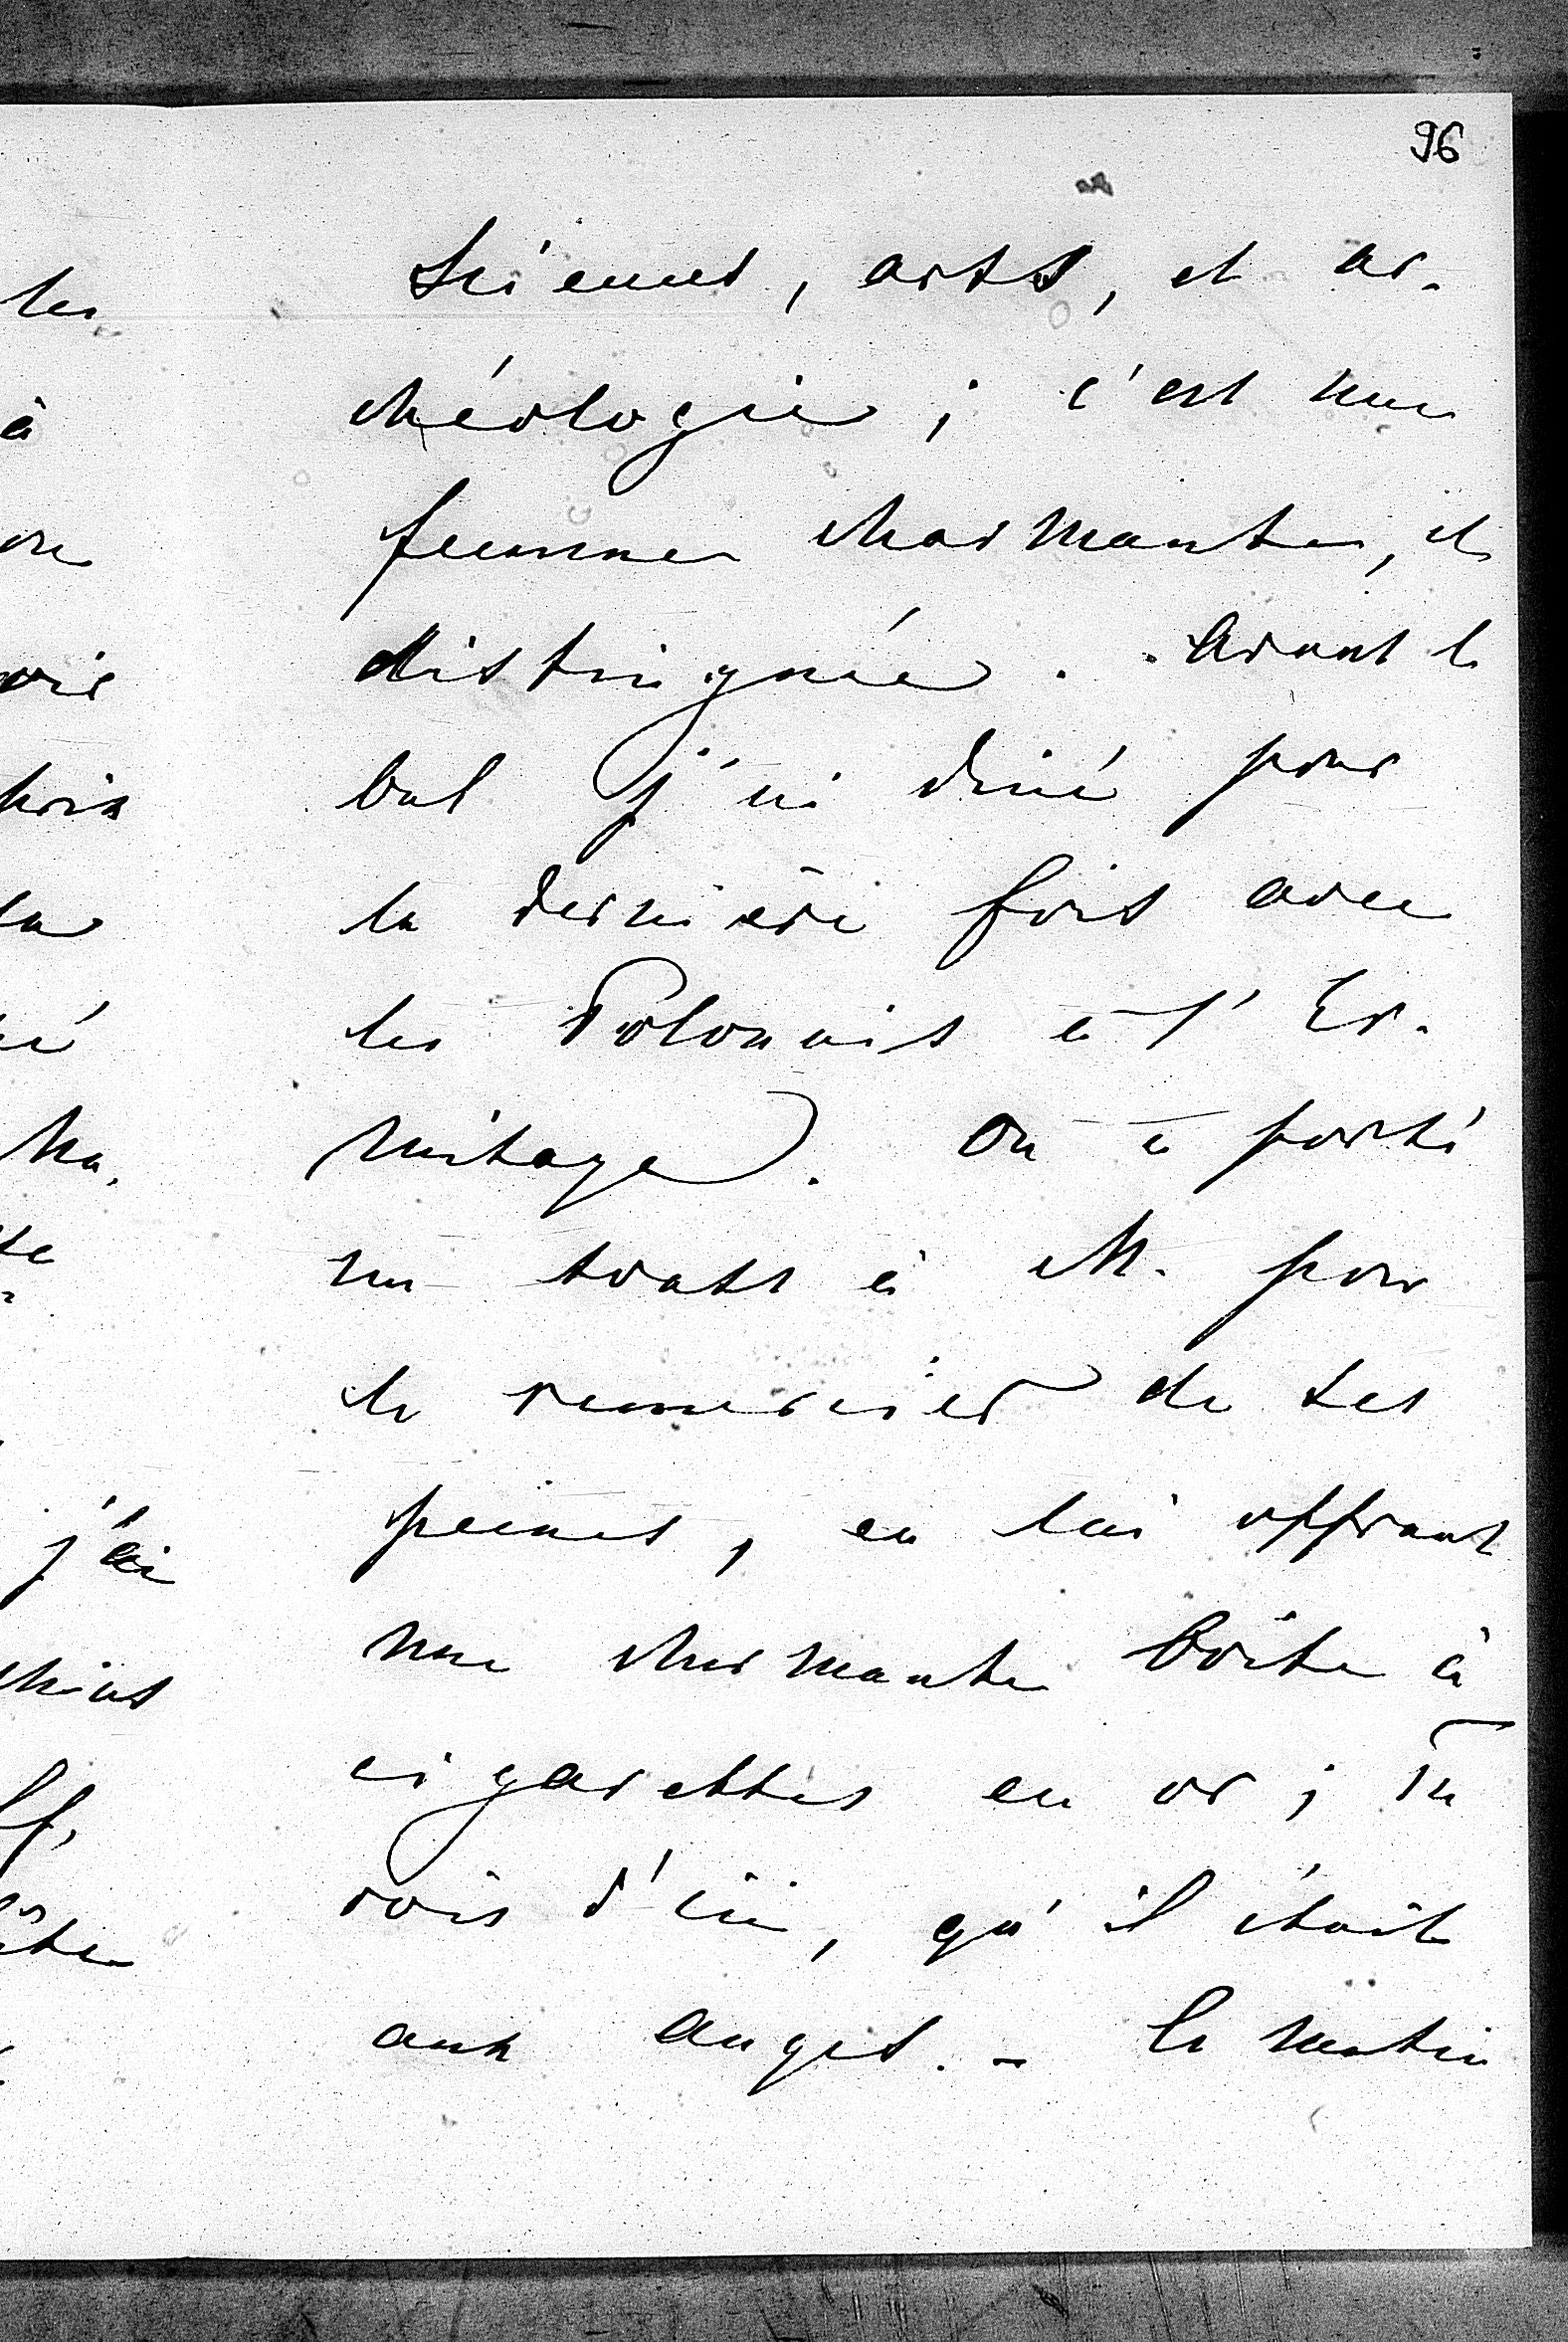 96
Sciences, arts, et ar-
chéologie; c'est une
femme charmante, et
distinguée. Avant le
bal j'ai diné pour
la dernière fois avec
les Polonais à l'Er-
mitage. On a porté
un toast à M. pour
le remercier de ses
peines, en lui offrant
une charmante boîte à
cigarettes en or; Tu
vois d'ici, qu'il était
aux anges. - Le matin
les
à
j'ai